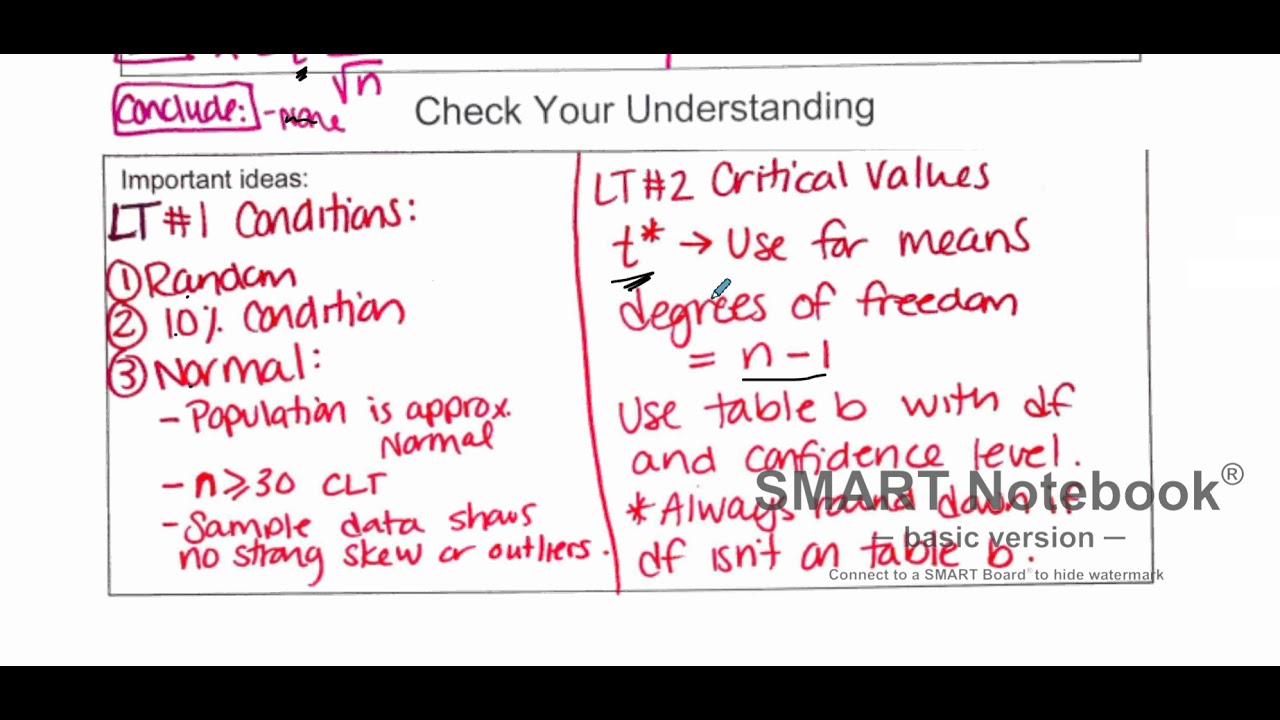 √n
Conclude: - none
Check Your Understanding
Important ideas:
LT #1 Conditions:
① Random
② 10% Condition
③ Normal:
- Population is approx.
Normal
- n ≥ 30 CLT
- Sample data shows
no strong skew or outliers.
LT #2 Critical Values
t* → Use for means
degrees of freedom
= n - 1
Use table b with df
and confidence level.
*Always round down if
df isn't on table b.
SMART Notebook®
— basic version —
Connect to a SMART Board® to hide watermark